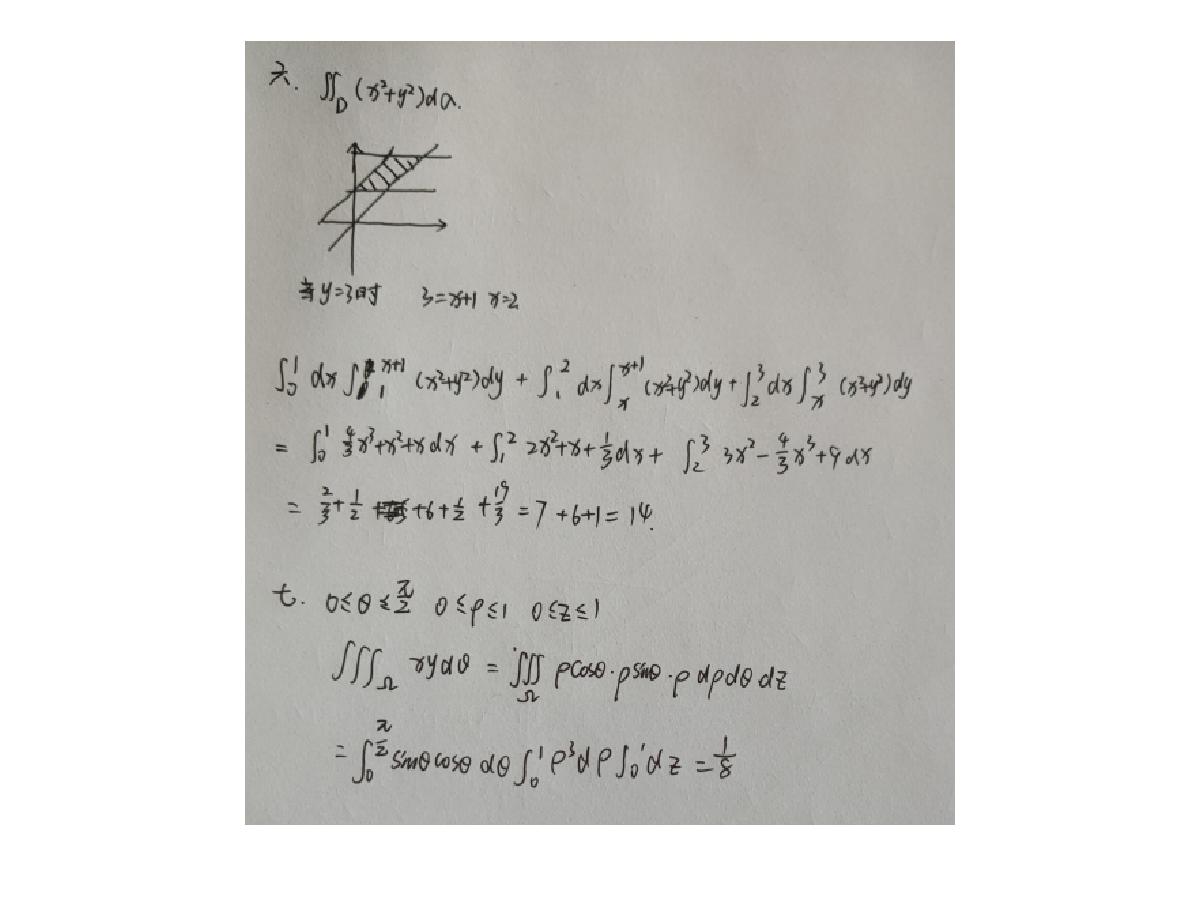 六. ∬_D (x²+y²)da.
当y=3时 3=x+1 x=2
∫₀¹ dx ∫₁^{x+1} (x²+y²)dy + ∫₁² dx ∫ₓ^{x+1} (x²+y²)dy + ∫₂³ dx ∫ₓ³ (x²+y²)dy
= ∫₀¹ 4/3 x³+x²+x dx + ∫₁² 2x²+x+1/3 dx + ∫₂³ 3x²-4/3 x³+9 dx
= 2/3 + 1/2 + 6 + 1/2 + 19/3 = 7+6+1 = 14.
七. 0≤θ≤π/2 0≤ρ≤1 0≤z≤1
∭_Ω xydθ = ∭_Ω ρcosθ·ρsinθ·ρ dρdθdz
= ∫₀^{π/2} sinθcosθ dθ ∫₀¹ ρ³dρ ∫₀¹ dz = 1/8